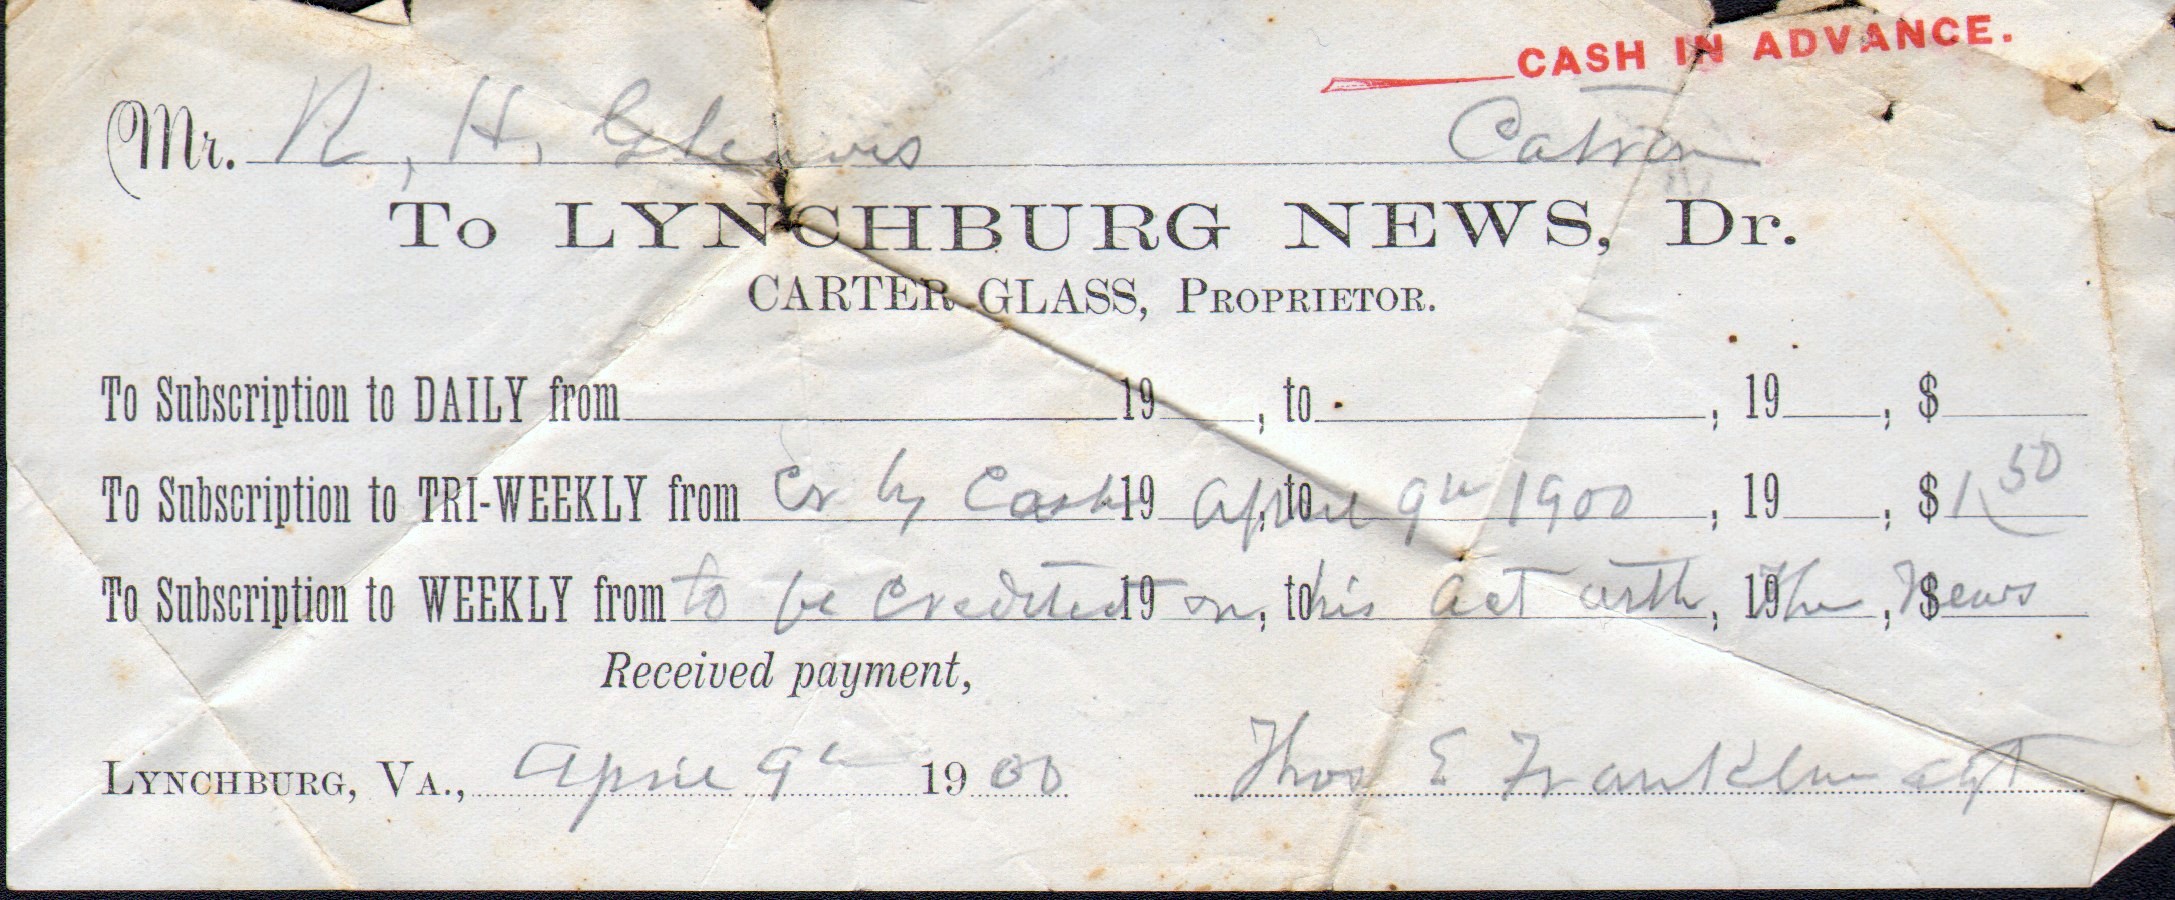 CASH IN ADVANCE.
Mr. R. H. Gleavis Catron
To LYNCHBURG NEWS, Dr.
CARTER GLASS, PROPRIETOR.
To Subscription to DAILY from 19 , to , 19 , $
To Subscription to TRI-WEEKLY from Cr by Cash 19 , to April 9th 1900 , 19 , $ 1.50
To Subscription to WEEKLY from to be credited 19 on , to his act with , 19 The , $ News
Received payment,
LYNCHBURG, VA., April 9th 1900 Thos E Franklin agt